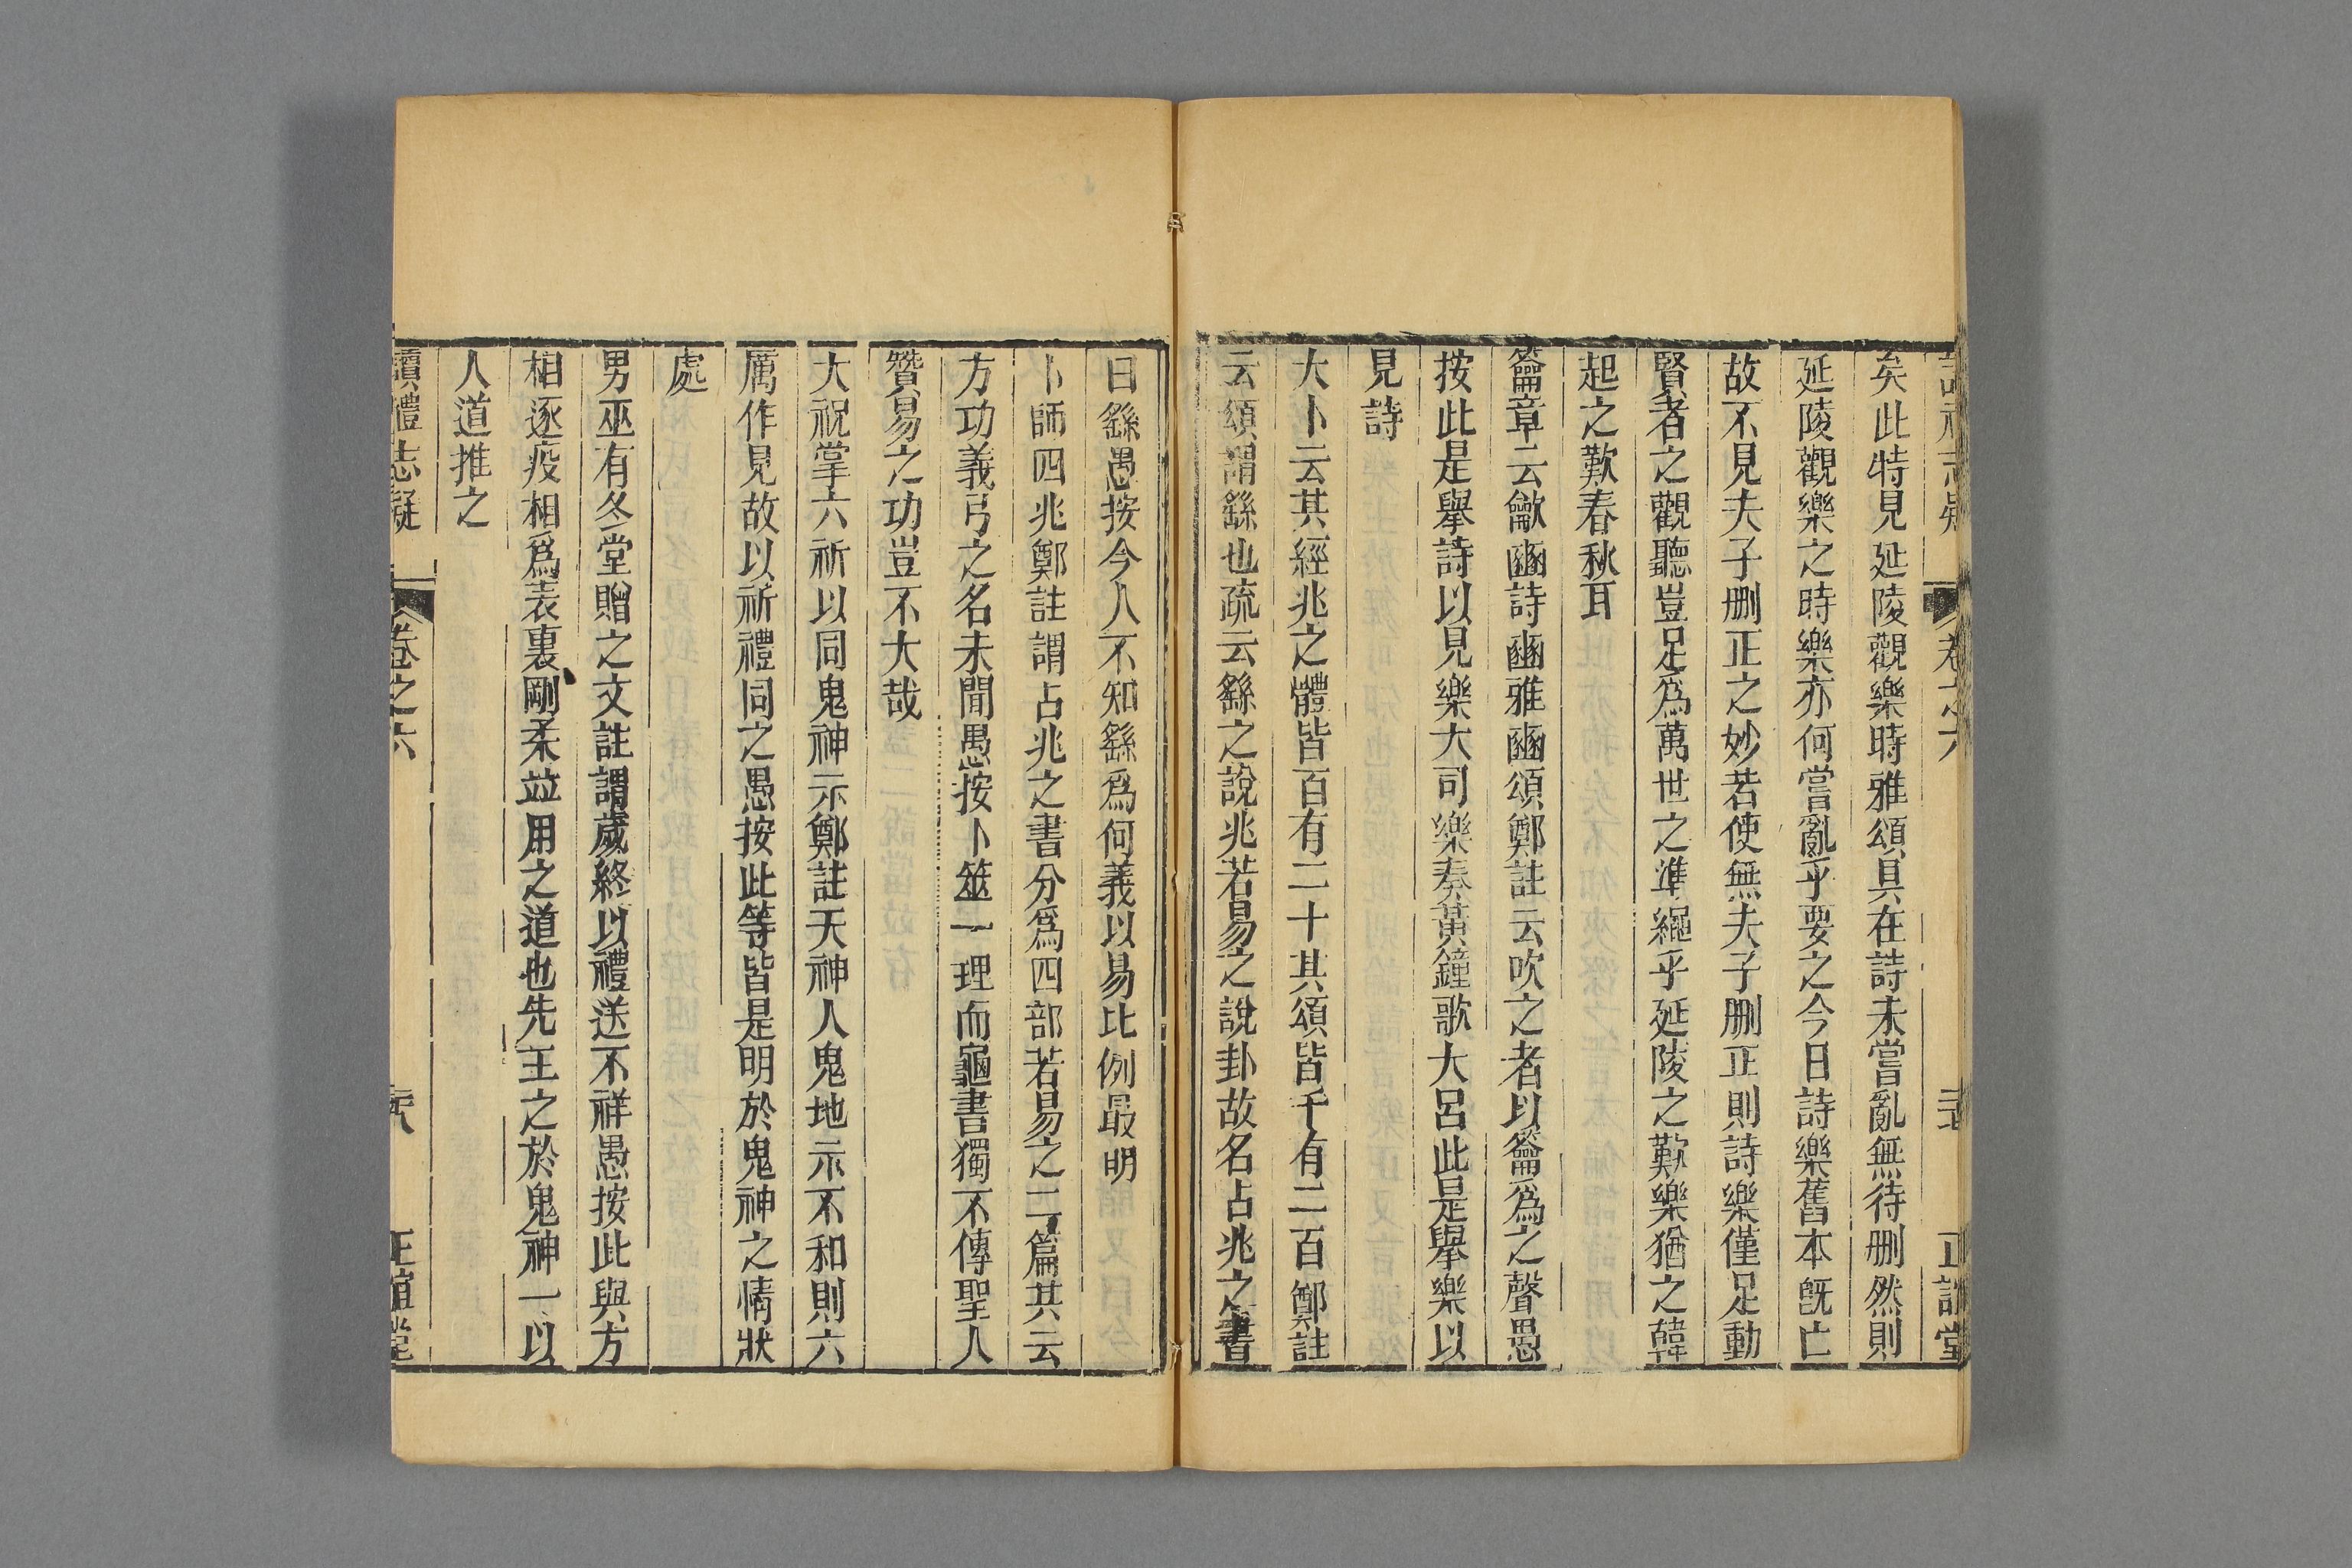 矣此特見延陵觀樂時雅頌具在詩未嘗亂無待刪然則
延陵觀樂之時樂亦何嘗亂乎要之今日詩樂舊本旣亡
故不見夫子刪正之妙若使無夫子刪正則詩樂僅足動
賢者之觀聽豈足爲萬世之準繩乎延陵之歎樂猶之韓
起之歎春秋耳
籥章云龡豳詩豳雅豳頌鄭註云吹之者以籥爲之聲愚
按此是舉詩以見樂大司樂奏黃鐘歌大呂此是舉樂以
見詩
大卜云其經兆之體皆百有二十其頌皆千有二百鄭註
云頌謂繇也疏云繇之說兆若易之說卦故名占兆之書
曰繇愚按今人不知繇爲何義以易比例最明
卜師四兆鄭註謂占兆之書分爲四部若易之二篇其云
方功義弓之名未聞愚按卜筮一理而龜書獨不傳聖人
贊易之功豈不大哉
大祝掌六祈以同鬼神示鄭註天神人鬼地示不和則六
厲作見故以祈禮同之愚按此等皆是明於鬼神之情狀
處
男巫有冬堂贈之文註謂歲終以禮送不祥愚按此與方
相逐疫相爲表裏剛柔竝用之道也先王之於鬼神一以
人道推之
讀禮志疑 卷之六 正誼堂